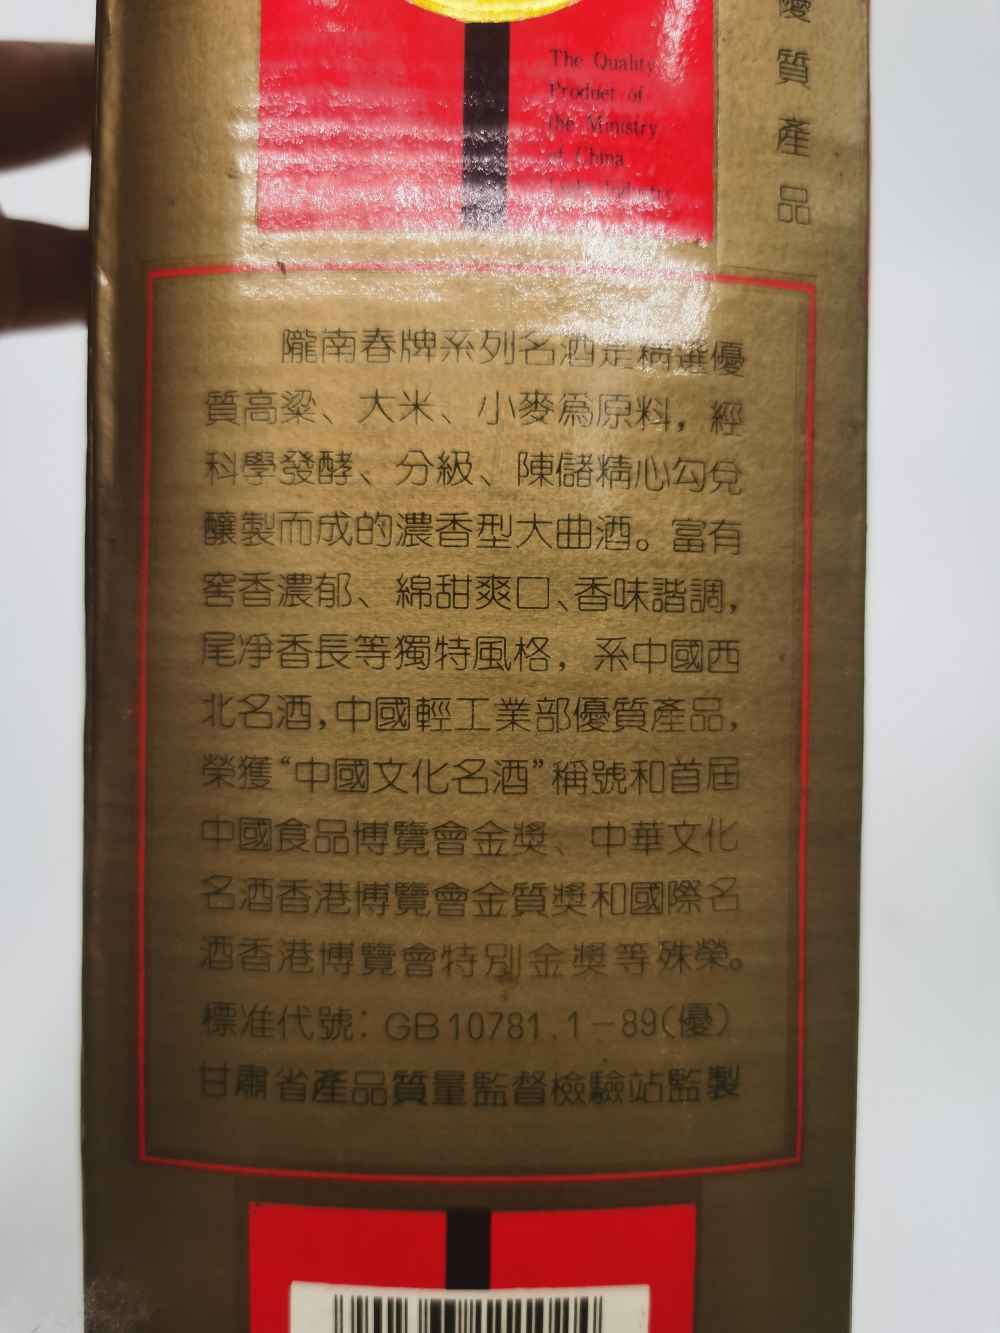 The Quality
Product of
the Ministry
of China
Light Industry
優質產品
隴南春牌系列名酒是精選優
質高粱、大米、小麥為原料，經
科學發酵、分級、陳儲精心勾兌
釀製而成的濃香型大曲酒。富有
窖香濃郁、綿甜爽口、香味諧調，
尾净香長等獨特風格，系中國西
北名酒，中國輕工業部優質產品，
榮獲“中國文化名酒”稱號和首屆
中國食品博覽會金獎、中華文化
名酒香港博覽會金質獎和國際名
酒香港博覽會特別金獎等殊榮。
標准代號：GB10781.1－89（優）
甘肅省產品質量監督檢驗站監製